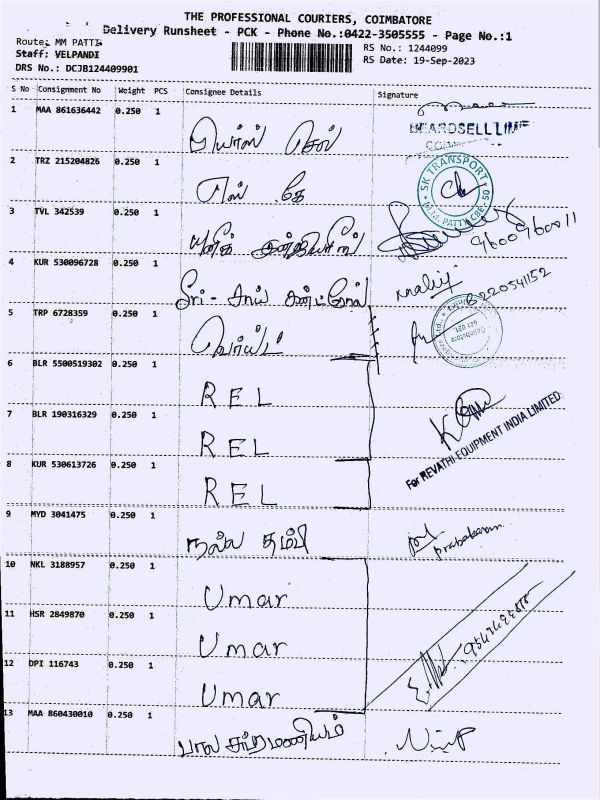 THE PROFESSIONAL COURIERS, COIMBATORE
Delivery Runsheet - PCK - Phone No.:0422-3505555 - Page No.:1
Route: MM PATTI
RS No.: 1244099
Staff: VELPANDI
RS Date: 19-Sep-2023
DRS No.: DCJB124409901
S No Consignment No Weight PCS Consignee Details Signature
1 MAA 861636442 0.250 1
2 TRZ 215204826 0.250 1 எஸ் கே SK TRANSPORT
3 TVL 342539 0.250 1 9600960011
4 KUR 530096728 0.250 1 Sri - சாய்
5 TRP 6728359 0.250 1
6 BLR 5500519302 0.250 1 REL
7 BLR 190316329 0.250 1 REL
For REVATHI EQUIPMENT INDIA LIMITED
8 KUR 530613726 0.250 1 REL
9 MYD 3041475 0.250 1 நல்ல தம்பி prabakaran
10 NKL 3188957 0.250 1 Umar
11 HSR 2849870 0.250 1 Umar
12 DPI 116743 0.250 1 Umar
13 MAA 860430010 0.250 1 பால சுப்ரமணியம்